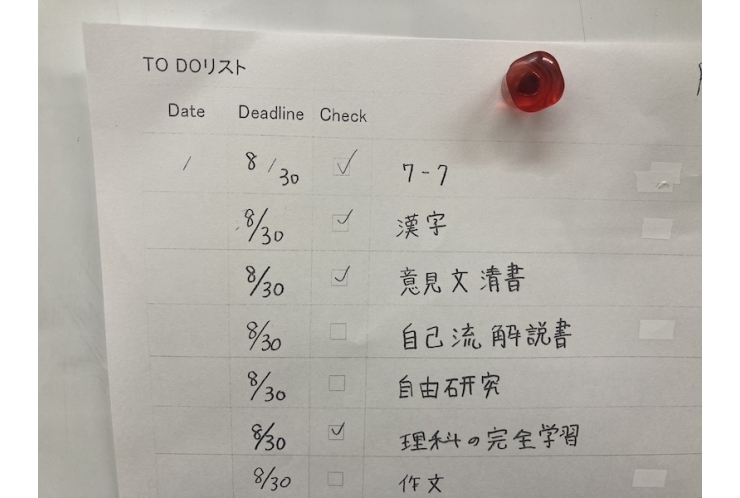 TO DOリスト
Date Deadline Check
/ 8/30 ✓ ワ-ク
8/30 ✓ 漢字
8/30 ✓ 意見文清書
8/30 自己流解説書
8/30 自由研究
8/30 ✓ 理科の完全学習
8/30 作文